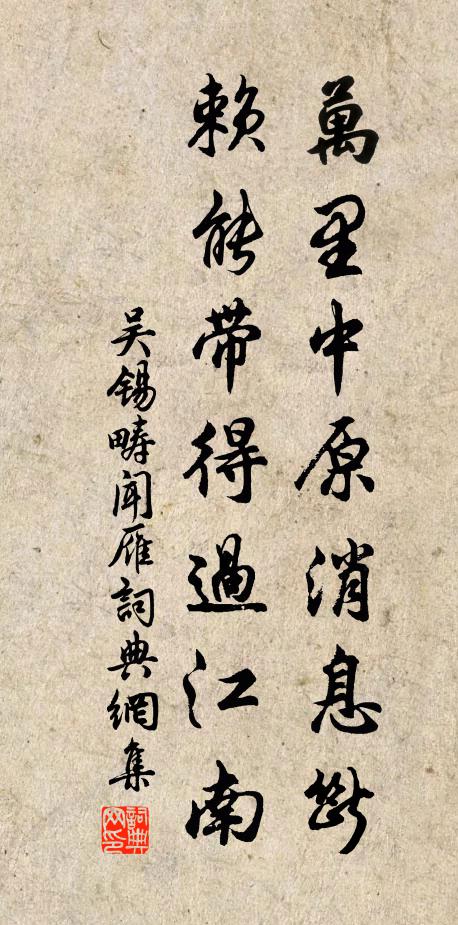 萬里中原消息斷
賴能帶得過江南
吴锡畴闻雁詞典網集
詞典网印